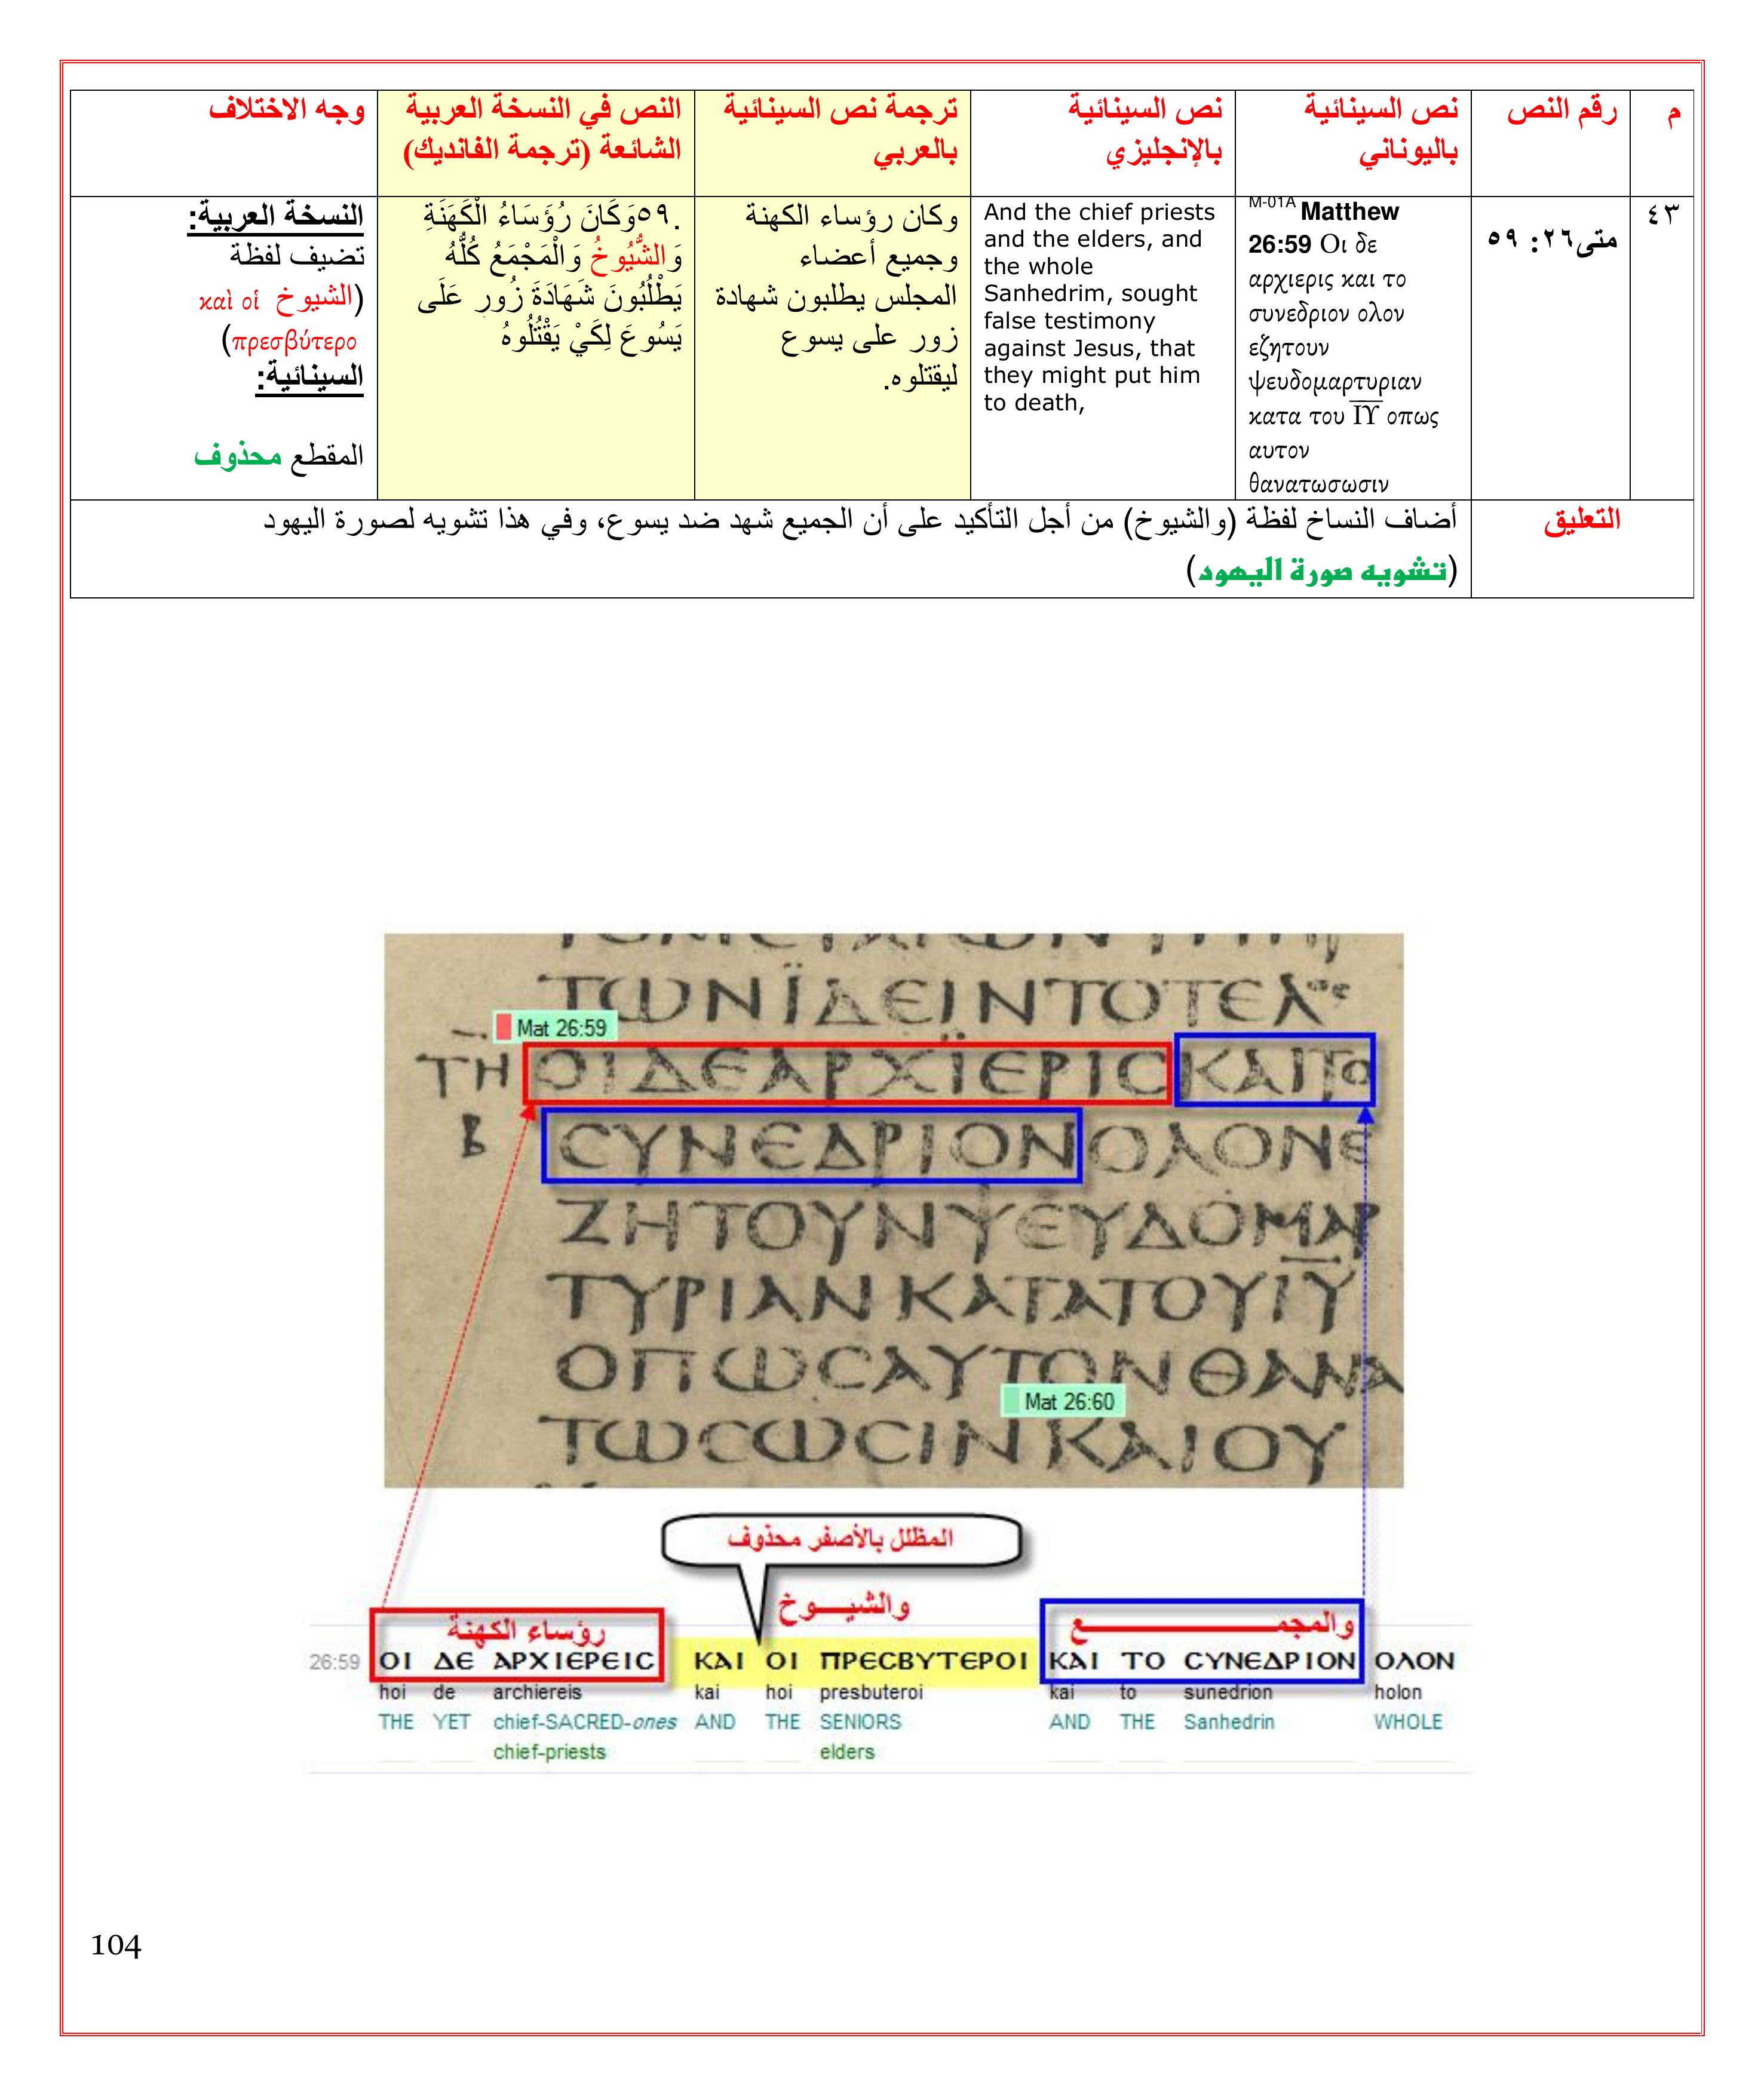 م
رقم النص
نص السينائية
باليوناني
نص السينائية
بالإنجليزي
ترجمة نص السينائية
بالعربي
النص في النسخة العربية
الشائعة (ترجمة الفانديك)
وجه الاختلاف
٤٣
متى٢٦: ٥٩
M-01A Matthew
26:59 Οι δε
αρχιερις και το
συνεδριον ολον
εζητουν
ψευδομαρτυριαν
κατα του ΙΥ οπως
αυτον
θανατωσωσιν
And the chief priests
and the elders, and
the whole
Sanhedrim, sought
false testimony
against Jesus, that
they might put him
to death,
وكان رؤساء الكهنة
وجميع أعضاء
المجلس يطلبون شهادة
زور على يسوع
ليقتلوه.
.٥٩وَكَانَ رُؤَسَاءُ الْكَهَنَةِ
وَالشُّيُوخُ وَالْمَجْمَعُ كُلُّهُ
يَطْلُبُونَ شَهَادَةَ زُورٍ عَلَى
يَسُوعَ لِكَيْ يَقْتُلُوهُ
النسخة العربية:
تضيف لفظة
(الشيوخ καὶ οἱ
πρεσβύτερο)
السينائية:
المقطع محذوف
التعليق
أضاف النساخ لفظة (والشيوخ) من أجل التأكيد على أن الجميع شهد ضد يسوع، وفي هذا تشويه لصورة اليهود
(تشويه صورة اليهود)
ΤΩΝΪΔΕΙΝΤΟΤΕΛΟϹ
Mat 26:59
ΤΗ ΟΙΔΕΑΡΧΪΕΡΙϹΚΑΙΤΟ
Β ϹΥΝΕΔΡΙΟΝΟΛΟΝΕ
ΖΗΤΟΥΝΨΕΥΔΟΜΑΡ
ΤΥΡΙΑΝΚΑΤΑΤΟΥΙΥ
ΟΠΩϹΑΥΤΟΝΘΑΝΑ
Mat 26:60
ΤΩϹΩϹΙΝΚΑΙΟΥ
المظلل بالأصفر محذوف
رؤساء الكهنة والشيـــوخ والمجمـــــــع
26:59 ΟΙ ΔΕ ΑΡΧΙΕΡΕΙϹ ΚΑΙ ΟΙ ΠΡΕϹΒΥΤΕΡΟΙ ΚΑΙ ΤΟ ϹΥΝΕΔΡΙΟΝ ΟΛΟΝ
hoi de archiereis kai hoi presbuteroi kai to sunedrion holon
THE YET chief-SACRED-ones AND THE SENIORS AND THE Sanhedrin WHOLE
chief-priests elders
104